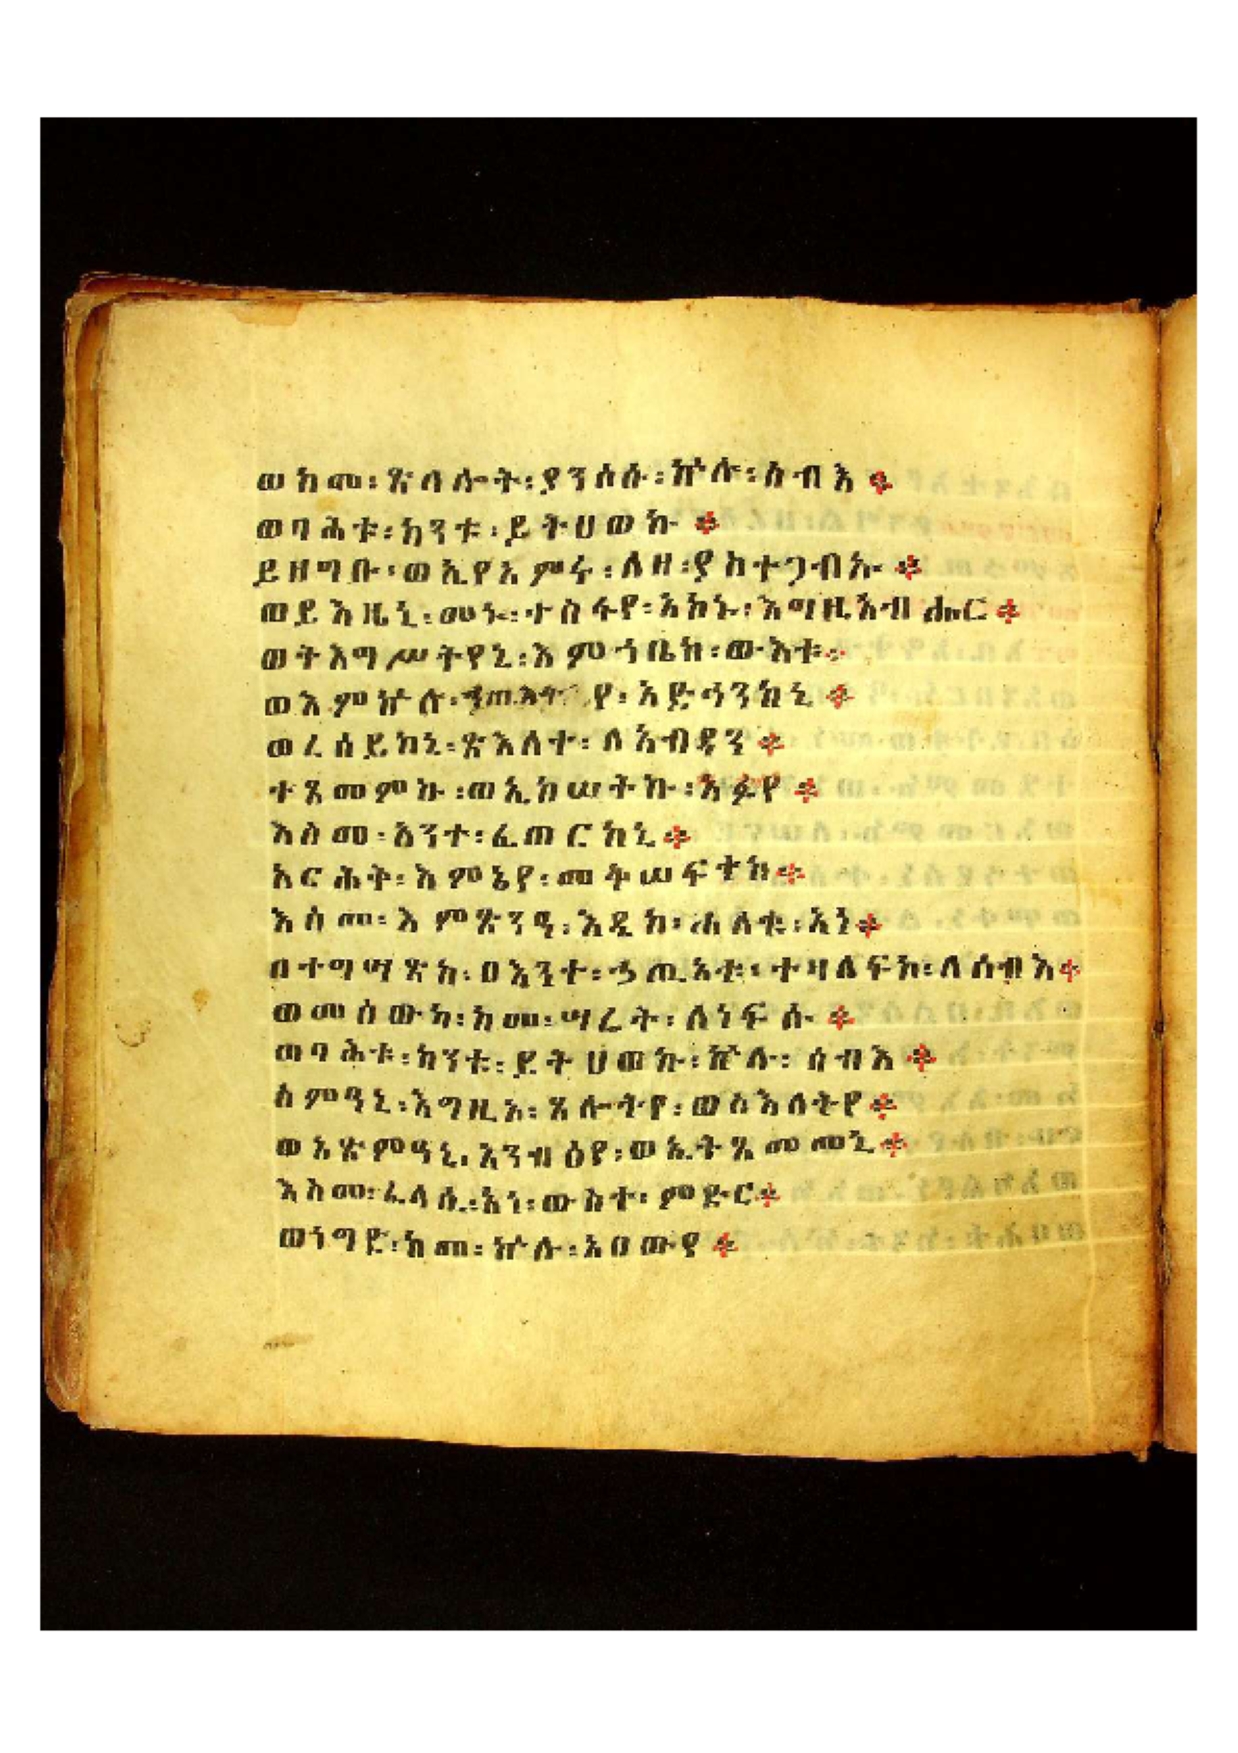 ወከመ፡ጽላሎት፡ያንሶሱ፡ኵሉ፡ሰብእ፨
ወባሕቱ፡ከንቱ፡ይትሀወኩ፨
ይዘግቡ፡ወኢየአምሩ፡ለዘ፡ያስተጋብኡ፨
ወይእዜኒ፡መኑ፡ተስፋየ፡አኮኑ፡እግዚአብሔር፨
ወትእግሥትየኒ፡እምኀቤከ፡ውእቱ፨
ወእምኵሉ፡ኀጢአትየ፡አድኅንከኒ፨
ወረሰይከኒ፡ጽእለተ፡ለአብዳን፨
ተጸመምኩ፡ወኢከሠትኩ፡አፉየ፨
እስመ፡አንተ፡ፈጠርከኒ፨
አርሕቅ፡እምኔየ፡መቅሠፍተከ፨
እስመ፡እምጽንዓ፡እዲከ፡ሐለቁ፡አነ፨
በተግሣጽከ፡በእንተ፡ኃጢአቱ፡ተዛለፍኮ፡ለሰብእ፨
ወመሰውካ፡ከመ፡ሣሬት፡ለነፍሱ፨
ወባሕቱ፡ከንቱ፡ይትሀወኩ፡ኵሉ፡ሰብእ፨
ስምዓኒ፡እግዚአ፡ጸሎትየ፡ወስእለትየ፨
ወአጽምዓኒ፡አንብዕየ፡ወኢትጸመመኒ፨
እስመ፡ፈላሲ፡አነ፡ውስተ፡ምድር፨
ወነግድ፡ከመ፡ኵሉ፡አበውየ፨